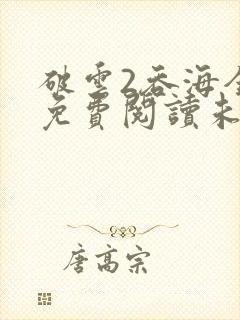 破雲2吞海全
免費閱讀未
唐高宗